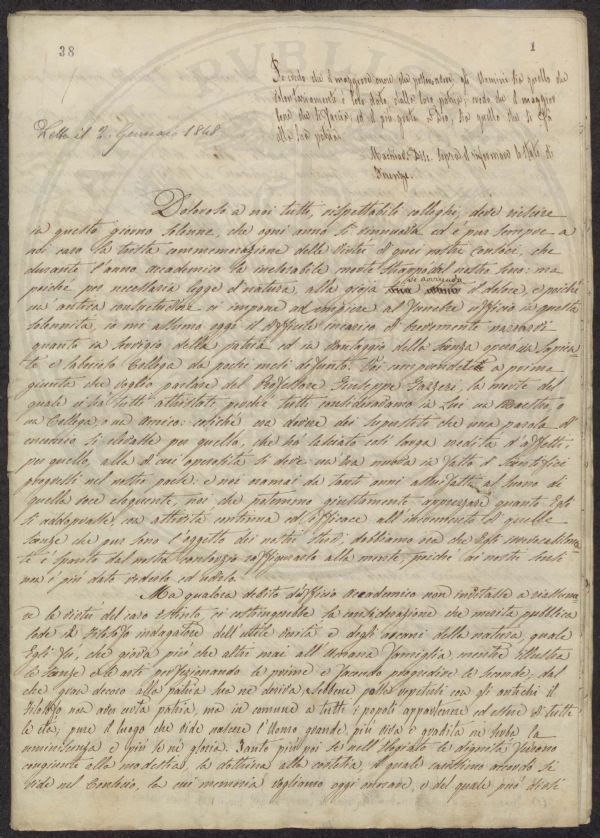 38
1
Io credo che il maggior onore che possino avere gli Uomini sia quello che
volontariamente è loro dato dalla loro patria; credo che il maggior
bene che si faccia, ed il più grato a Dio, sia quello che si fa
alla sua patria.
Machiav. Disc. sopra il riformare lo Stato di
Firenze.
Letto il 2. Gennaio 1848
Doloroso a noi tutti, rispettabili colleghi, deve riescire
in questo giorno solenne, che ogni anno si rinnuova ed è pur sempre a
noi caro la trista commemorazione delle virtù di quei nostri consoci, che
durante l'anno accademico la inesorabile morte strappò dal nostro seno: ma
poiché per necessaria legge di natura, alla gioia il dolore, e poiché
un antica consuetudine ci impone ad compiere al funebre ufficio in questa
solennità, io mi assumo oggi il difficile incarico di brevemente narrarvi
quanto in servigio della patria ed in vantaggio della scienza operò un
e laborioso Collega da pochi mesi defunto. Voi comprendete a prima
giunta che voglio parlare del Professore Giuseppe Gazzeri, la morte del
quale ci ha tutti attristati perché tutti consideravamo in Lui un Maestro, o
un Collega, o un Amico: cosicché un dovere dei superstiti che una parola di
encomio si elevasse per quello, che ha lasciato così larga eredità d'affetti,
per quello, alla di cui operosità si deve un'era nuova in fatto di scientifici
progressi nel nostro paese: e noi oramai da tanti anni assuefatti al suono di
quella voce eloquente, noi che potemmo giustamente apprezzare quanto Egli
si addoprasse con attività continua ed efficace all'incremento di quelle
scienze che pur sono l'oggetto dei nostri studi, dobbiamo ora che Egli
è sparito dal nostro consorzio raffigurarlo alla mente, poiché ai nostri sensi
non è più dato vederlo ed udirlo.
Ma qualora debito d'ufficio accademico non m'invitasse a
re le virtù del caro estinto, ci costringerebbe la considerazione che merita pubblica
lode il Filosofo indagatore dell'utile verità e degli arcani della natura, quale
Egli fu, che giova più che altri mai all'Umana famiglia, mentre illustra
le scienze e le arti perfezionando le prime e facendo progredire le seconde, dal
che gran decoro alla patria sua ne deriva. Sebbene possa ripetersi con gli antichi il
Filosofo non aver certa patria, ma in comune a tutti i popoli appartenere ed essere di tutte
le età, pure il luogo che vide nascere l'Uomo grande, più viva e gradita ne serba la
reminiscenza e più se ne gloria. Tanto più poi se nell'elogiato le dignità furono
congiunte alla modestia, la dottrina alla cortesia, il quale rarissimo accordo si
vide nel Consocio, la cui memoria vogliamo oggi onorare, e del quale può dirsi